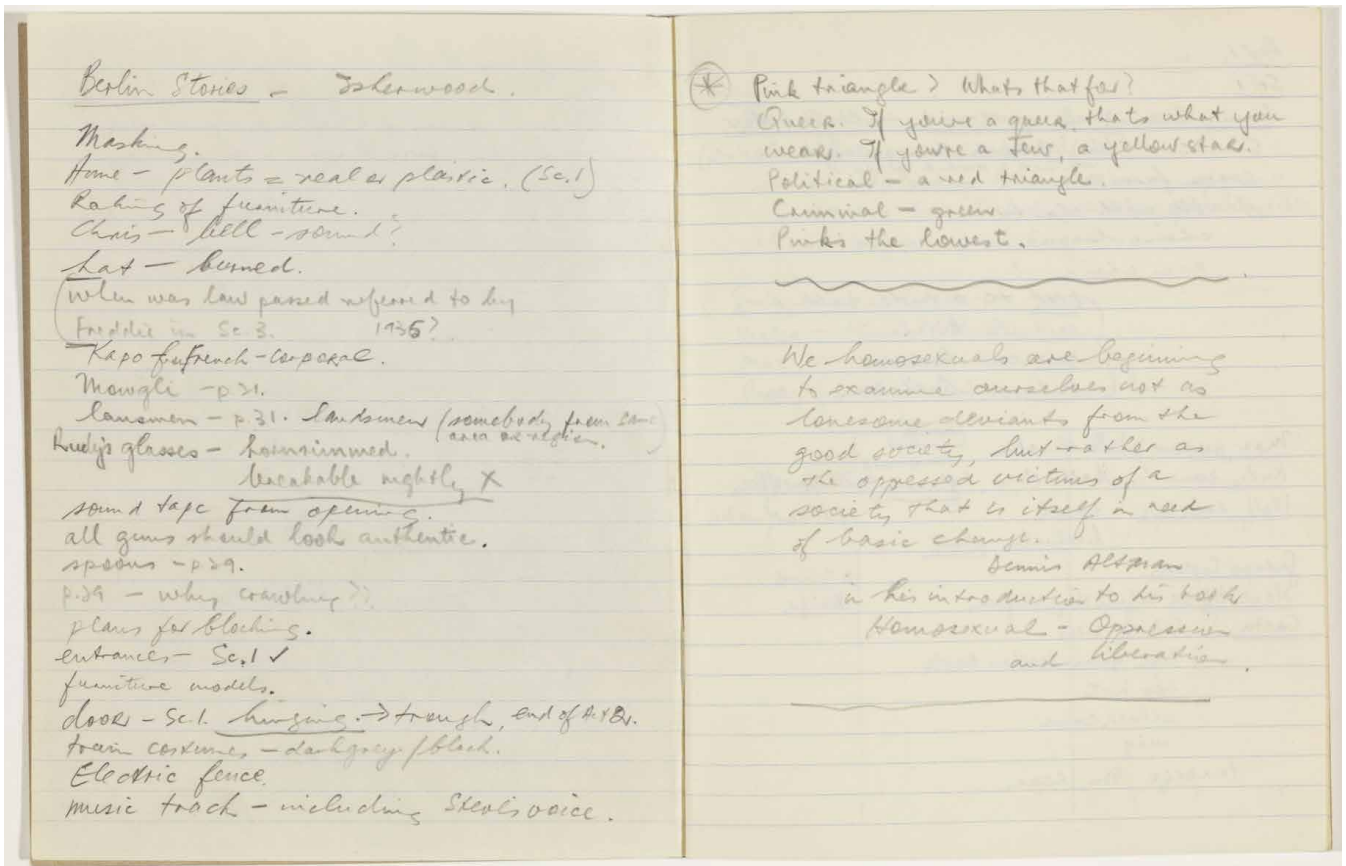 Berlin Stories - Isherwood.
Masking.
Home - plants = real or plastic. (Sc.1)
Raking of furniture.
Chris - bell - sound?
hat - burned.
(When was law passed referred to by
Freddie in Sc 3. 1935?
Kapo French - corporal.
Mowgli - p31.
lansmen - p.31. landsmen (somebody from same
area or region.)
Rudy's glasses - hornrimmed.
breakable nightly X
sound tape from opening.
all guns should look authentic.
spoons - p29.
p.29 - why crawling??
plans for blocking.
entrances - Sc.1 ✓
furniture models.
door - Sc1. hinging. → trough, end of Act 2.
train costumes - dark grey / black.
Electric fence.
music track - including Steve's voice.
* Pink triangle? Whats that for?
Queer. If you're a queer, thats what you
wear. If you're a Jew, a yellow star.
Political - a red triangle.
Criminal - green
Pink's the lowest.
We homosexuals are beginning
to examine ourselves not as
lonesome deviants from the
good society, but rather as
the oppressed victims of a
society that is itself in need
of basic change.
Dennis Altman
in his introduction to his book
Homosexual - Oppression
and liberation.